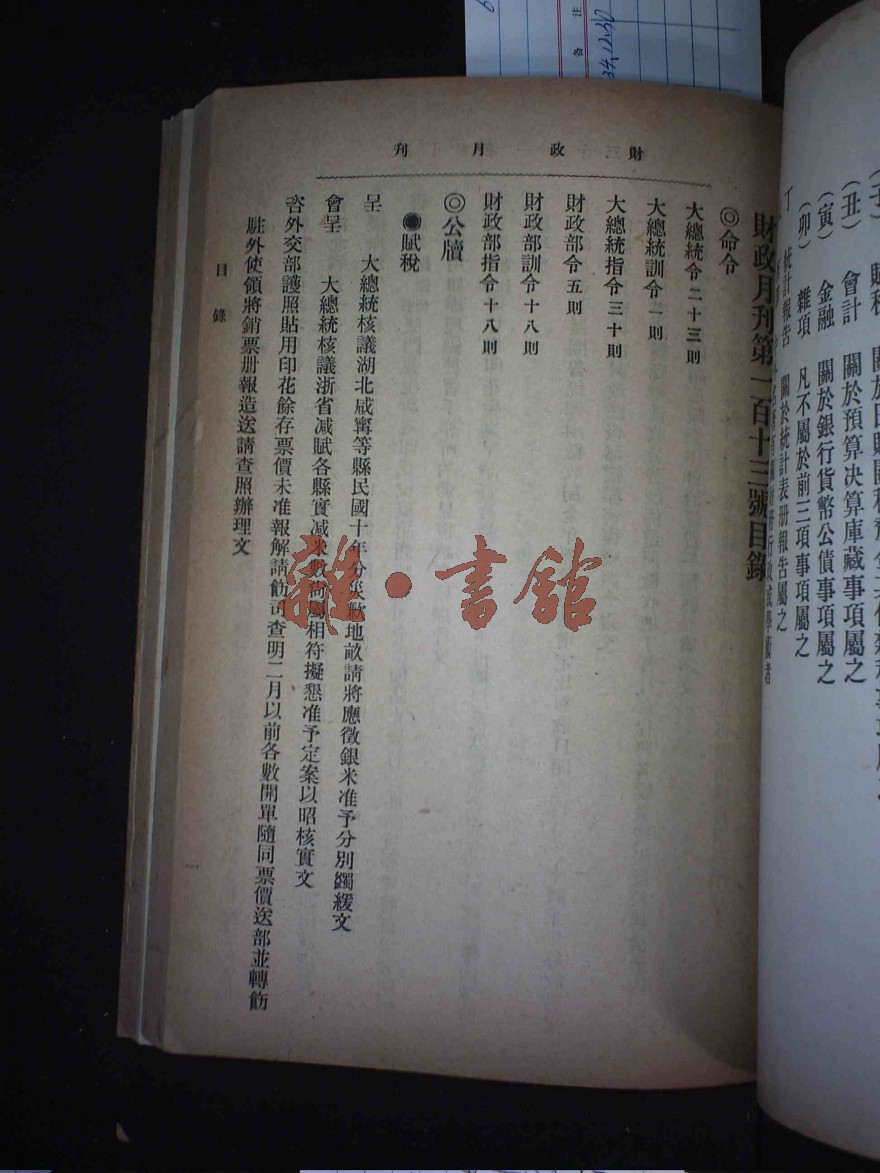 （丑）　會計　關於預算決算庫藏事項屬之
（寅）　金融　關於銀行貨幣公債事項屬之
（卯）　雜項　凡不屬於前三項事項屬之
丁　統計報告　關於統計表册報告屬之
財政月刊
財政月刊第一百十三號目錄
◎命令
大總統令二十三則
大總統訓令一則
大總統指令三十則
財政部令五則
財政部訓令十八則
財政部指令十八則
◎公牘
●賦稅
呈　大總統核議湖北咸寗等縣民國十年分災歉地畝請將應徵銀米准予分別蠲緩文
會呈　大總統核議浙省减賦各縣實减米數尙屬相符擬懇准予定案以昭核實文
咨外交部護照貼用印花餘存票價未准報解請飭司查明二月以前各數開單隨同票價送部並轉飭
駐外使領將銷票册報造送請查照辦理文
目錄
一
雜·書館
備注